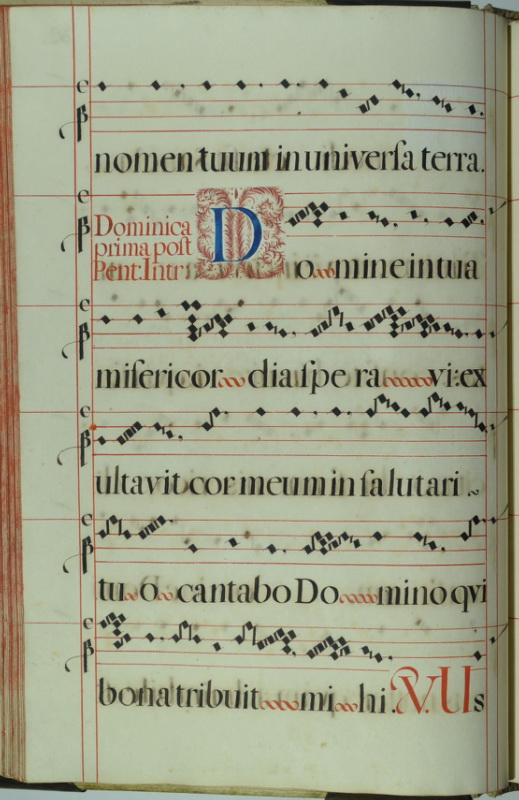 nomen tuum in univerſa terra.
Dominica
prima poſt
Pent: Intr:
Domine in tua
miſericordia ſperavi: ex
ultavit cor meum in ſalutari
tuo cantabo Domino qvi
bona tribuit mihi. V. Us